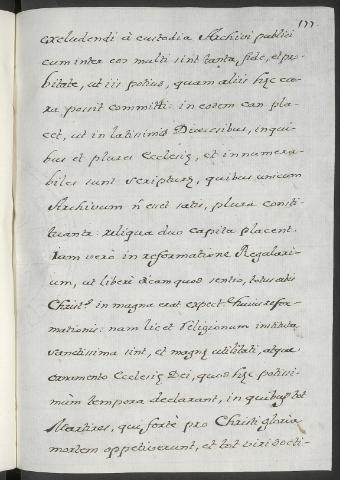 177.
excludendi à custodia Archivi publici
cum inter eos multi sint tanta fide, et pro=
bitate, ut iis potius, quam aliis hęc cu=
ra possit committi: in eodem can pla=
cet, ut in latissimis Diœcesibus, in qui=
bus et plures Ecclesię, et innumera=
biles sunt scripturę, quibus unicum
Archivum ñ esset satis, plura consti=
tuantr reliqua duo capita placent.
Iam verò in reformatione Regulari=
um, ut liberè dicam quod sentio, totus orbis
Christs in magna erat expectne huius refor=
mationis: nam licet Religionum instituta
sanctissima sint, et magnę utilitati, atque
ornamento Ecclesię Dei, quod hęc potissi=
mùm tempora declarant, in quibus tot
Martires, qui fortè pro Christi gloria
mortem oppetiverunt, et tot viri docti=